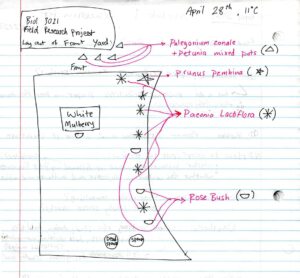 April 28th, 11°C
Biol 3021
Field Research Project
Lay out of Front Yard
Front
Phlegonium zonale
+ Petunia mixed pots (△)
Prunus Pembina (★)
White
Mulberry
Paeonia Lactflora (✳)
Rose Bush (◡)
Dead
stump
Stump